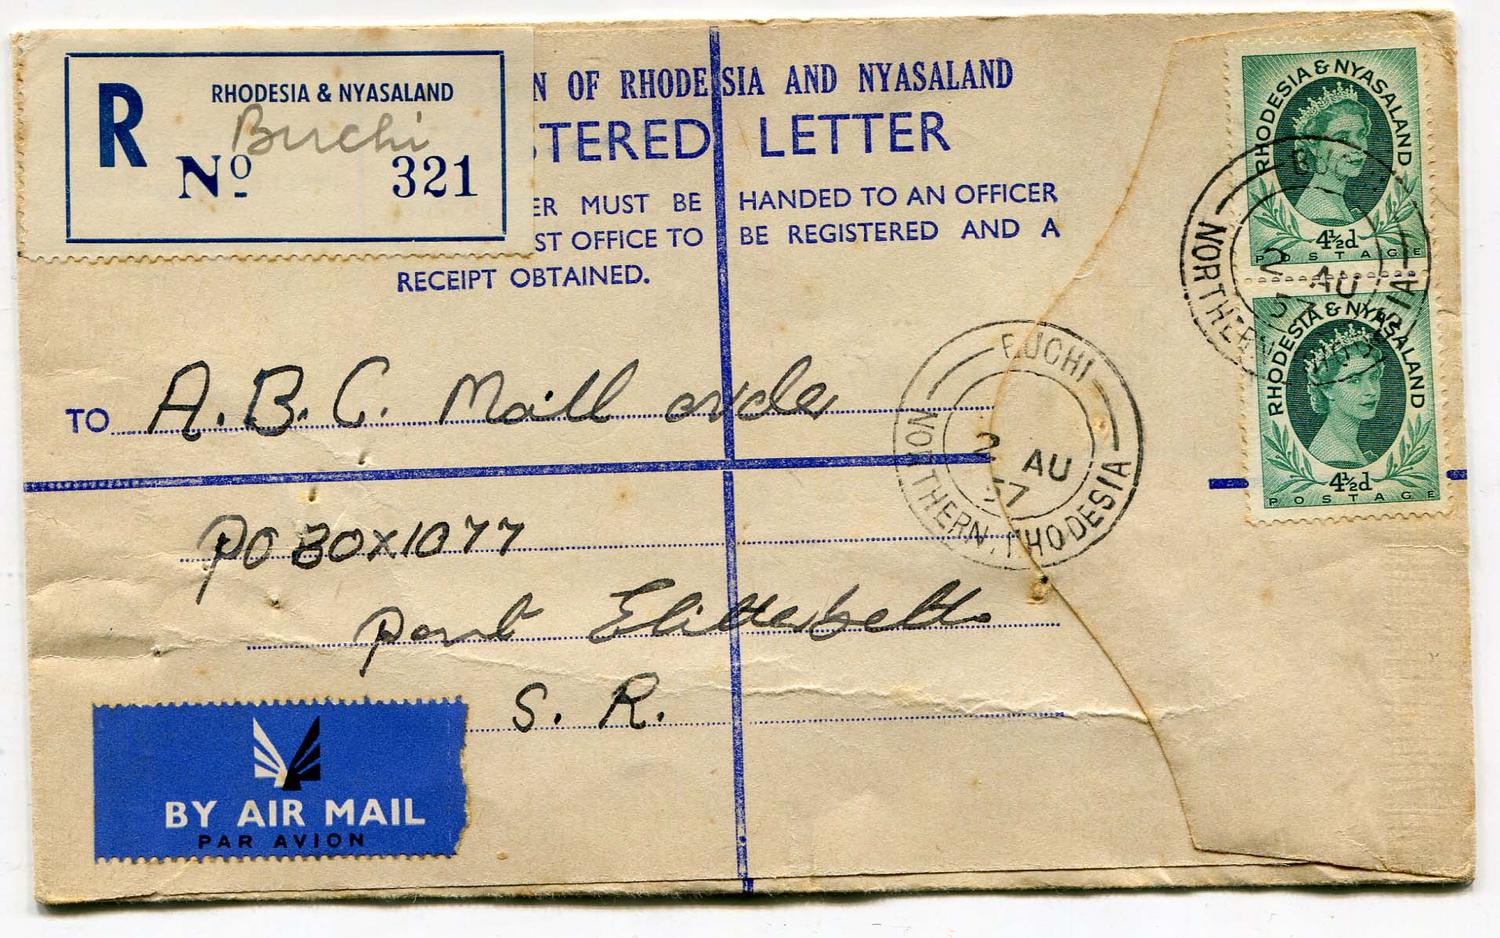 R
RHODESIA & NYASALAND
Buchi
Nº 321
N OF RHODESIA AND NYASALAND
STERED LETTER
ER MUST BE HANDED TO AN OFFICER
ST OFFICE TO BE REGISTERED AND A
RECEIPT OBTAINED.
RHODESIA & NYASALAND
4½d
POSTAGE
RHODESIA & NYASALAND
4½d
POSTAGE
BUCHI
2 AU
57
NORTHERN RHODESIA
BUCHI
2 AU
57
NORTHERN. RHODESIA
TO A.B.C. Mail order
PO BOX 1077
Port
S. R.
BY AIR MAIL
PAR AVION